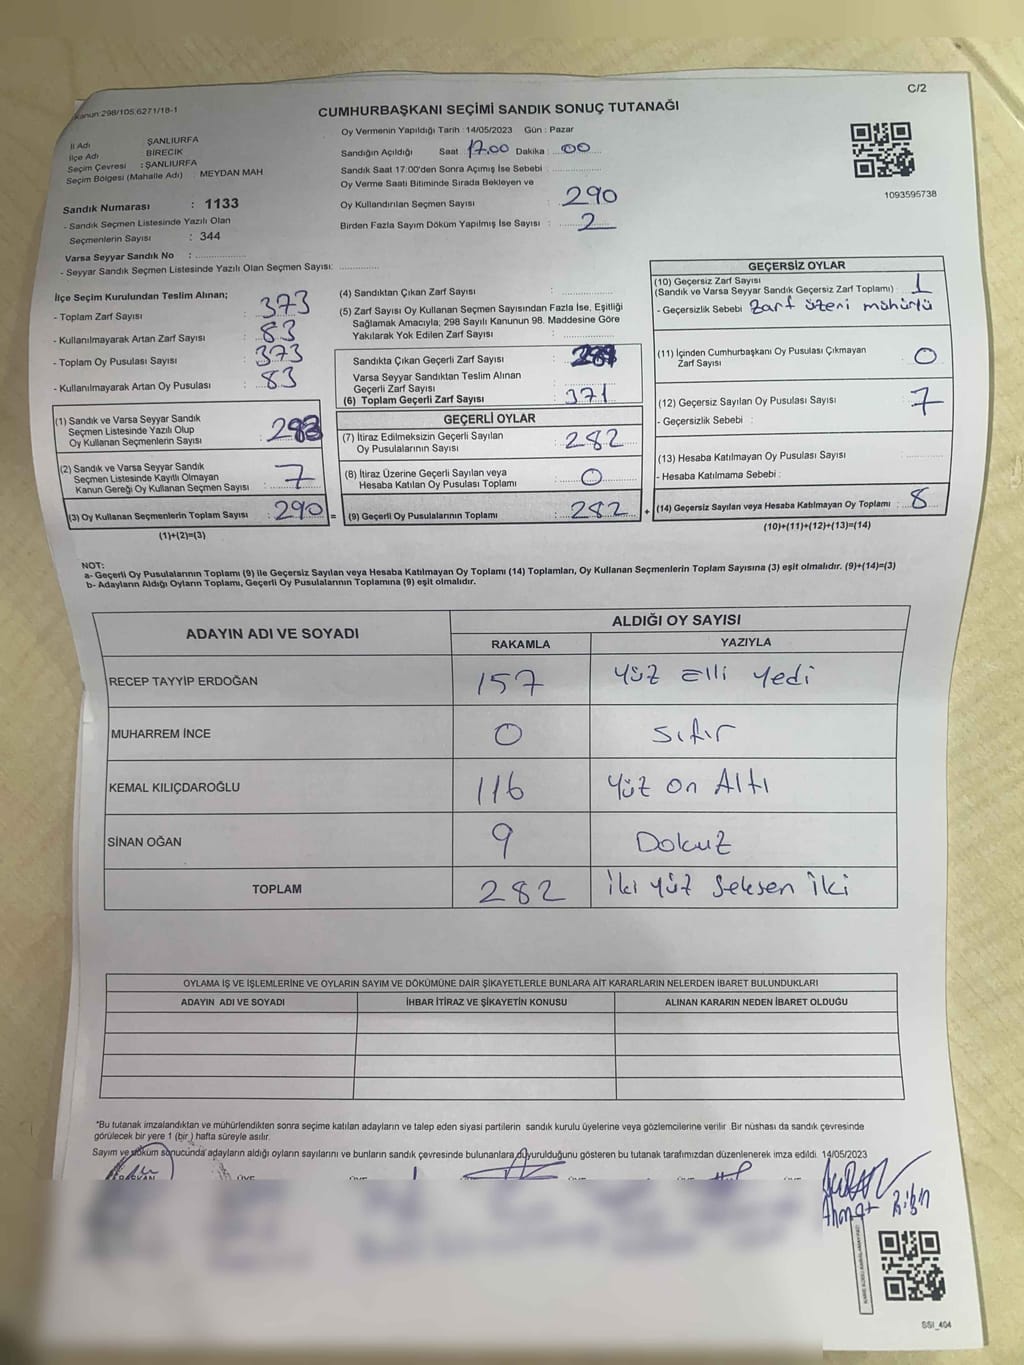 C/2
Kanun:298/105,6271/18-1
CUMHURBAŞKANI SEÇİMİ SANDIK SONUÇ TUTANAĞI
İl Adı : ŞANLIURFA
İlçe Adı : BİRECİK
Seçim Çevresi : ŞANLIURFA
Seçim Bölgesi (Mahalle Adı) MEYDAN MAH
Sandık Numarası : 1133
- Sandık Seçmen Listesinde Yazılı Olan
Seçmenlerin Sayısı : 344
Varsa Seyyar Sandık No :
- Seyyar Sandık Seçmen Listesinde Yazılı Olan Seçmen Sayısı:
Oy Vermenin Yapıldığı Tarih : 14/05/2023 Gün : Pazar
Sandığın Açıldığı Saat 17.00 Dakika : 00
Sandık Saat 17:00'den Sonra Açımış İse Sebebi :
Oy Verme Saati Bitiminde Sırada Bekleyen ve
Oy Kullandırılan Seçmen Sayısı : 290
Birden Fazla Sayım Döküm Yapılmış İse Sayısı : 2
1093595738
İlçe Seçim Kurulundan Teslim Alınan;
- Toplam Zarf Sayısı : 373
- Kullanılmayarak Artan Zarf Sayısı : 83
- Toplam Oy Pusulası Sayısı : 373
- Kullanılmayarak Artan Oy Pusulası : 83
(1) Sandık ve Varsa Seyyar Sandık
Seçmen Listesinde Yazılı Olup
Oy Kullanan Seçmenlerin Sayısı : 283
(2) Sandık ve Varsa Seyyar Sandık
Seçmen Listesinde Kayıtlı Olmayan
Kanun Gereği Oy Kullanan Seçmen Sayısı : 7
(3) Oy Kullanan Seçmenlerin Toplam Sayısı : 290
(1)+(2)=(3)
(4) Sandıktan Çıkan Zarf Sayısı :
(5) Zarf Sayısı Oy Kullanan Seçmen Sayısından Fazla İse, Eşitliği
Sağlamak Amacıyla, 298 Sayılı Kanunun 98. Maddesine Göre
Yakılarak Yok Edilen Zarf Sayısı :
Sandıkta Çıkan Geçerli Zarf Sayısı :
Varsa Seyyar Sandıktan Teslim Alınan
Geçerli Zarf Sayısı :
(6) Toplam Geçerli Zarf Sayısı : 371
GEÇERLİ OYLAR
(7) İtiraz Edilmeksizin Geçerli Sayılan
Oy Pusulalarının Sayısı : 282
(8) İtiraz Üzerine Geçerli Sayılan veya
Hesaba Katılan Oy Pusulası Toplamı : 0
= (9) Geçerli Oy Pusulalarının Toplamı : 282
GEÇERSİZ OYLAR
(10) Geçersiz Zarf Sayısı
(Sandık ve Varsa Seyyar Sandık Geçersiz Zarf Toplamı) : 1
- Geçersizlik Sebebi Zarf üzeri mühürlü
(11) İçinden Cumhurbaşkanı Oy Pusulası Çıkmayan
Zarf Sayısı : 0
(12) Geçersiz Sayılan Oy Pusulası Sayısı : 7
- Geçersizlik Sebebi :
(13) Hesaba Katılmayan Oy Pusulası Sayısı :
- Hesaba Katılmama Sebebi :
+ (14) Geçersiz Sayılan veya Hesaba Katılmayan Oy Toplamı : 8
(10)+(11)+(12)+(13)=(14)
NOT:
a- Geçerli Oy Pusulalarının Toplamı (9) ile Geçersiz Sayılan veya Hesaba Katılmayan Oy Toplamı (14) Toplamları, Oy Kullanan Seçmenlerin Toplam Sayısına (3) eşit olmalıdır. (9)+(14)=(3)
b- Adayların Aldığı Oyların Toplamı, Geçerli Oy Pusulalarının Toplamına (9) eşit olmalıdır.
ADAYIN ADI VE SOYADI
ALDIĞI OY SAYISI
RAKAMLA YAZIYLA
RECEP TAYYİP ERDOĞAN 157 Yüz Elli Yedi
MUHARREM İNCE 0 Sıfır
KEMAL KILIÇDAROĞLU 116 Yüz on Altı
SİNAN OĞAN 9 Dokuz
TOPLAM 282 İki yüz Seksen İki
OYLAMA İŞ VE İŞLEMLERİNE VE OYLARIN SAYIM VE DÖKÜMÜNE DAİR ŞİKAYETLERLE BUNLARA AİT KARARLARIN NELERDEN İBARET BULUNDUKLARI
ADAYIN ADI VE SOYADI İHBAR İTİRAZ VE ŞİKAYETİN KONUSU ALINAN KARARIN NEDEN İBARET OLDUĞU
*Bu tutanak imzalandıktan ve mühürlendikten sonra seçime katılan adayların ve talep eden siyasi partilerin sandık kurulu üyelerine veya gözlemcilerine verilir. Bir nüshası da sandık çevresinde
görülecek bir yere 1 (bir ) hafta süreyle asılır.
Sayım ve döküm sonucunda adayların aldığı oyların sayılarını ve bunların sandık çevresinde bulunanlara duyurulduğunu gösteren bu tutanak tarafımızdan düzenlenerek imza edildi. 14/05/2023
SSİ_404